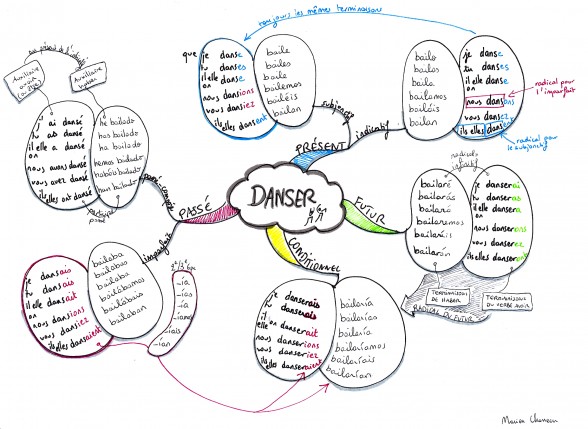 toujours les mêmes terminaisons
que je danse
tu danses
il elle danse
on
nous dansions
vous dansiez
ils elles dansent
baile
bailes
baile
bailemos
bailéis
bailen
subjonctif
indicatif
PRÉSENT
bailo
bailas
baila
bailamos
bailáis
bailan
je danse
tu danses
il elle danse
on
nous dansons
vous dansez
ils elles dansent
radical pour
l'imparfait
radical pour
le subjonctif
au présent de l'indicatif
Auxiliaire
avoir
Auxiliaire
haber
j'ai dansé
tu as dansé
il elle a dansé
on
nous avons dansé
vous avez dansé
ils elles ont dansé
he bailado
has bailado
ha bailado
hemos bailado
habéis bailado
han bailado
participe
passé
passé composé
PASSÉ
imparfait
DANSER
FUTUR
CONDITIONNEL
radical =
infinitif
bailaré
bailarás
bailará
bailaremos
bailaréis
bailarán
je danserai
tu danseras
il elle dansera
on
nous danserons
vous danserez
ils elles danseront
TERMINAISONS
DE HABER
TERMINAISONS
DU VERBE AVOIR
RADICAL DU FUTUR
je dansais
tu dansais
il elle dansait
on
nous dansions
vous dansiez
ils elles dansaient
bailaba
bailabas
bailaba
bailábamos
bailabais
bailaban
-ía
-ías
-ía
-íamos
-íais
-ían
je danserais
tu danserais
il elle on danserait
nous danserions
vous danseriez
ils elles danseraient
bailaría
bailarías
bailaría
bailaríamos
bailaríais
bailarían